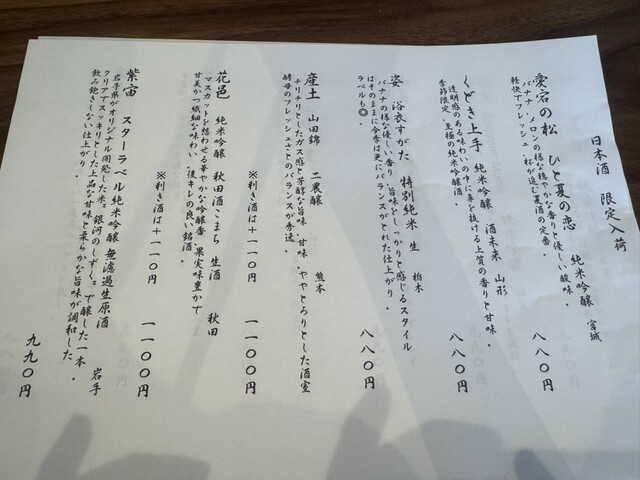 日本酒 限定入荷
愛宕の松 ひと夏の恋 純米吟醸 宮城
バナナ、メロンの様な穏やかな香りと優しい酸味。
軽快でフレッシュ、杯が進む夏酒の定番。
八八〇円
くどき上手 純米吟醸 酒未来 山形
透明感のある味わいの中に鼻を抜ける上質の香りと甘味。
季節限定、至極の純米吟醸酒。
八八〇円
姿 浴衣すがた 特別純米 生 栃木
バナナの様な優しい香り、旨味をしっかりと感じるスタイル
はそのままに今季は更にバランスがとれた仕上がり。
ラベルも◎。
八八〇円
産土 山田錦 二農醸 熊本
チリチリとしたガス感と芳醇な旨味、甘味。ややとろりとした酒室
酵母のフレッシュさとのバランスが秀逸。
※利き酒は+一一〇円 一一〇〇円
花邑 純米吟醸 秋田酒こまち 生酒 秋田
マスカットを想わせる華やかな吟醸香、果実味豊かで
甘美かつ繊細な味わい、後キレの良い銘酒。
※利き酒は+一一〇円 一一〇〇円
紫宙 スターラベル純米吟醸 無濾過生原酒 岩手
岩手県がオリジナル開発した米、銀河のしずく。で醸した一本
クリアでスッキリとした上品な甘味と柔らかな旨味が調和した
飲み飽きしない仕上がり。
九九〇円